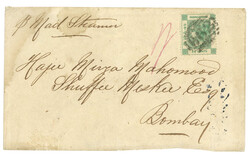 p Mail Steamer
Hajee Mirza Mahomood
Shuffee Meshee Esq
Bombay